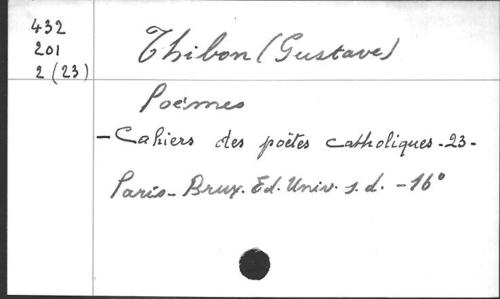 432
201
2 (23)
Thibon (Gustave)
Poèmes
- Cahiers des poëtes catholiques - 23 -
Paris - Brux. Ed. Univ. s. d. - 16°